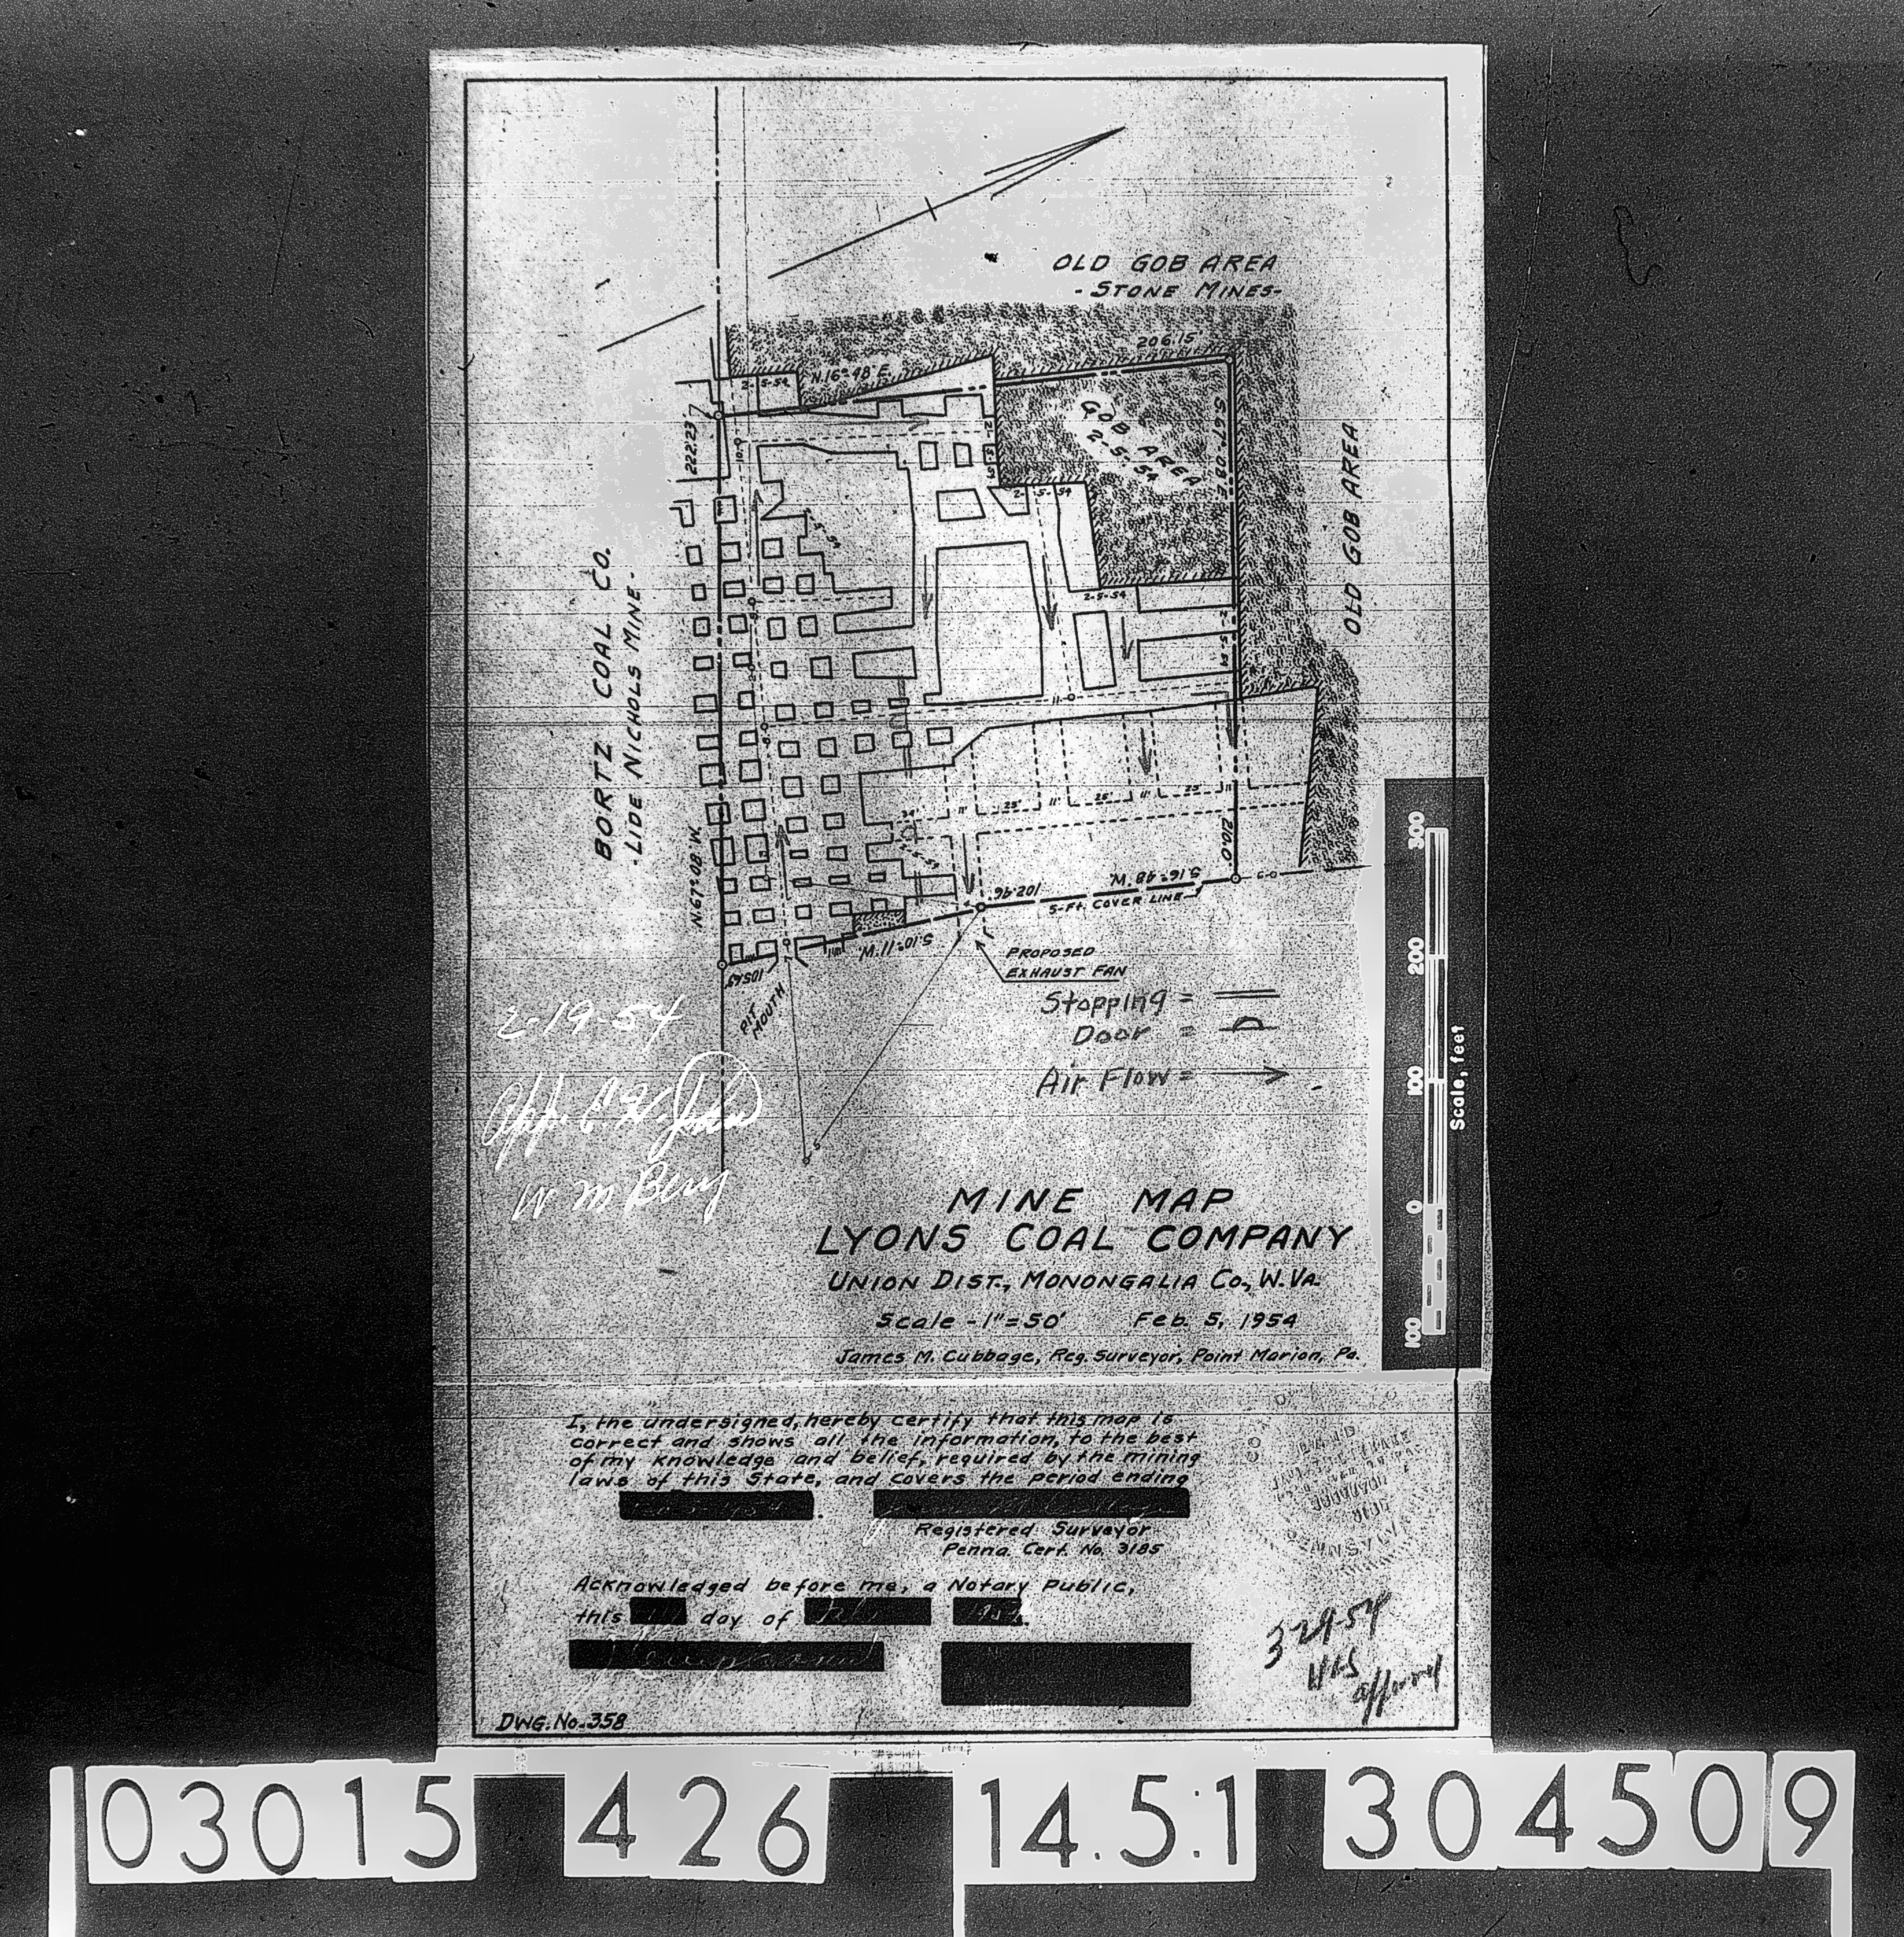 OLD GOB AREA
- STONE MINES -
206.15'
N.16°-48' E.
2-5-54
222.23'
GOB AREA
2-5-54
S.67°-08' E.
OLD GOB AREA
2-5-54
2-5-54
2-5-54
2-5-54
2-5-54
BORTZ COAL CO.
- LIDE NICHOLS MINE -
N.67°-08' W.
11' 25' 11' 25' 11' 25' 11'
2-5-54
210.0'
S.16°-48' W.
102.96
5-Ft. COVER LINE
S.10°-11' W.
105.63
PIT
MOUTH
PROPOSED
EXHAUST FAN
Stopping =
Door =
Air Flow =
2-19-54
W M Berry
MINE MAP
LYONS COAL COMPANY
UNION DIST., MONONGALIA CO., W. VA.
Scale - 1" = 50' Feb. 5, 1954
James M. Cubbage, Reg. Surveyor, Point Marion, Pa.
300
200
100
0
100
Scale, feet
I, the undersigned, hereby certify that this map is
correct and shows all the information, to the best
of my knowledge and belief, required by the mining
laws of this State, and covers the period ending
Registered Surveyor
Penna. Cert. No. 3185
Acknowledged before me, a Notary Public,
this day of
3-29-54
DWG. No. 358
03015 426 14.5.1 304509